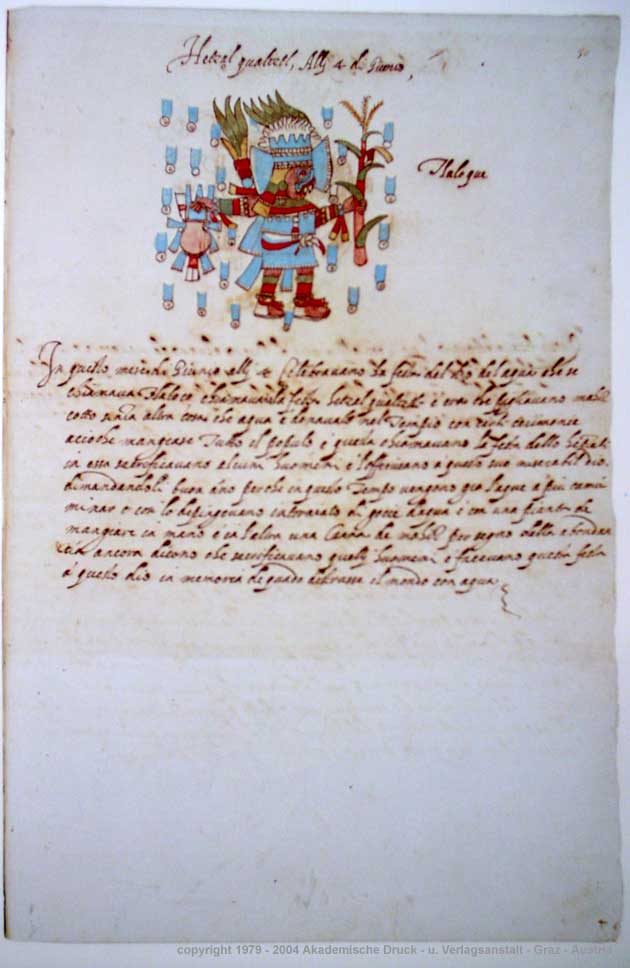 Hetzal qualztl, Alli 4 di Giunio,
Tlaloque
In questo mese di Giunio alli 4 Celebravano la festa del dio del aqua che se
chiamava Tlaloco chiamavasi la festa hetzalqualiztli è era che pigliavano mahiz
cotto senza altra cosa che aqua è donavalo nel Tempio con certi cerimonie
acioche mangiase Tutto el populo è questa chiamavano la festa dello
in essa sacrificavano alcuni huomini è l'offerivano a questo suo miserabil dio
dimandandoli buon año perche in questo Tempo vengono già l'aque a più
minar o con lo depingevano entornato di gocie d'aqua è con una
mangiare in mano è in l'altra una Canna de mahiz per segno della abondan
cia ancora dicono che sacrificavano quelli huomini è facevano questa festa
à questo dio in memoria di quado destrusse el mondo con aqua
copyright 1979 - 2004 Akademische Druck - u. Verlagsanstalt - Graz - Austria